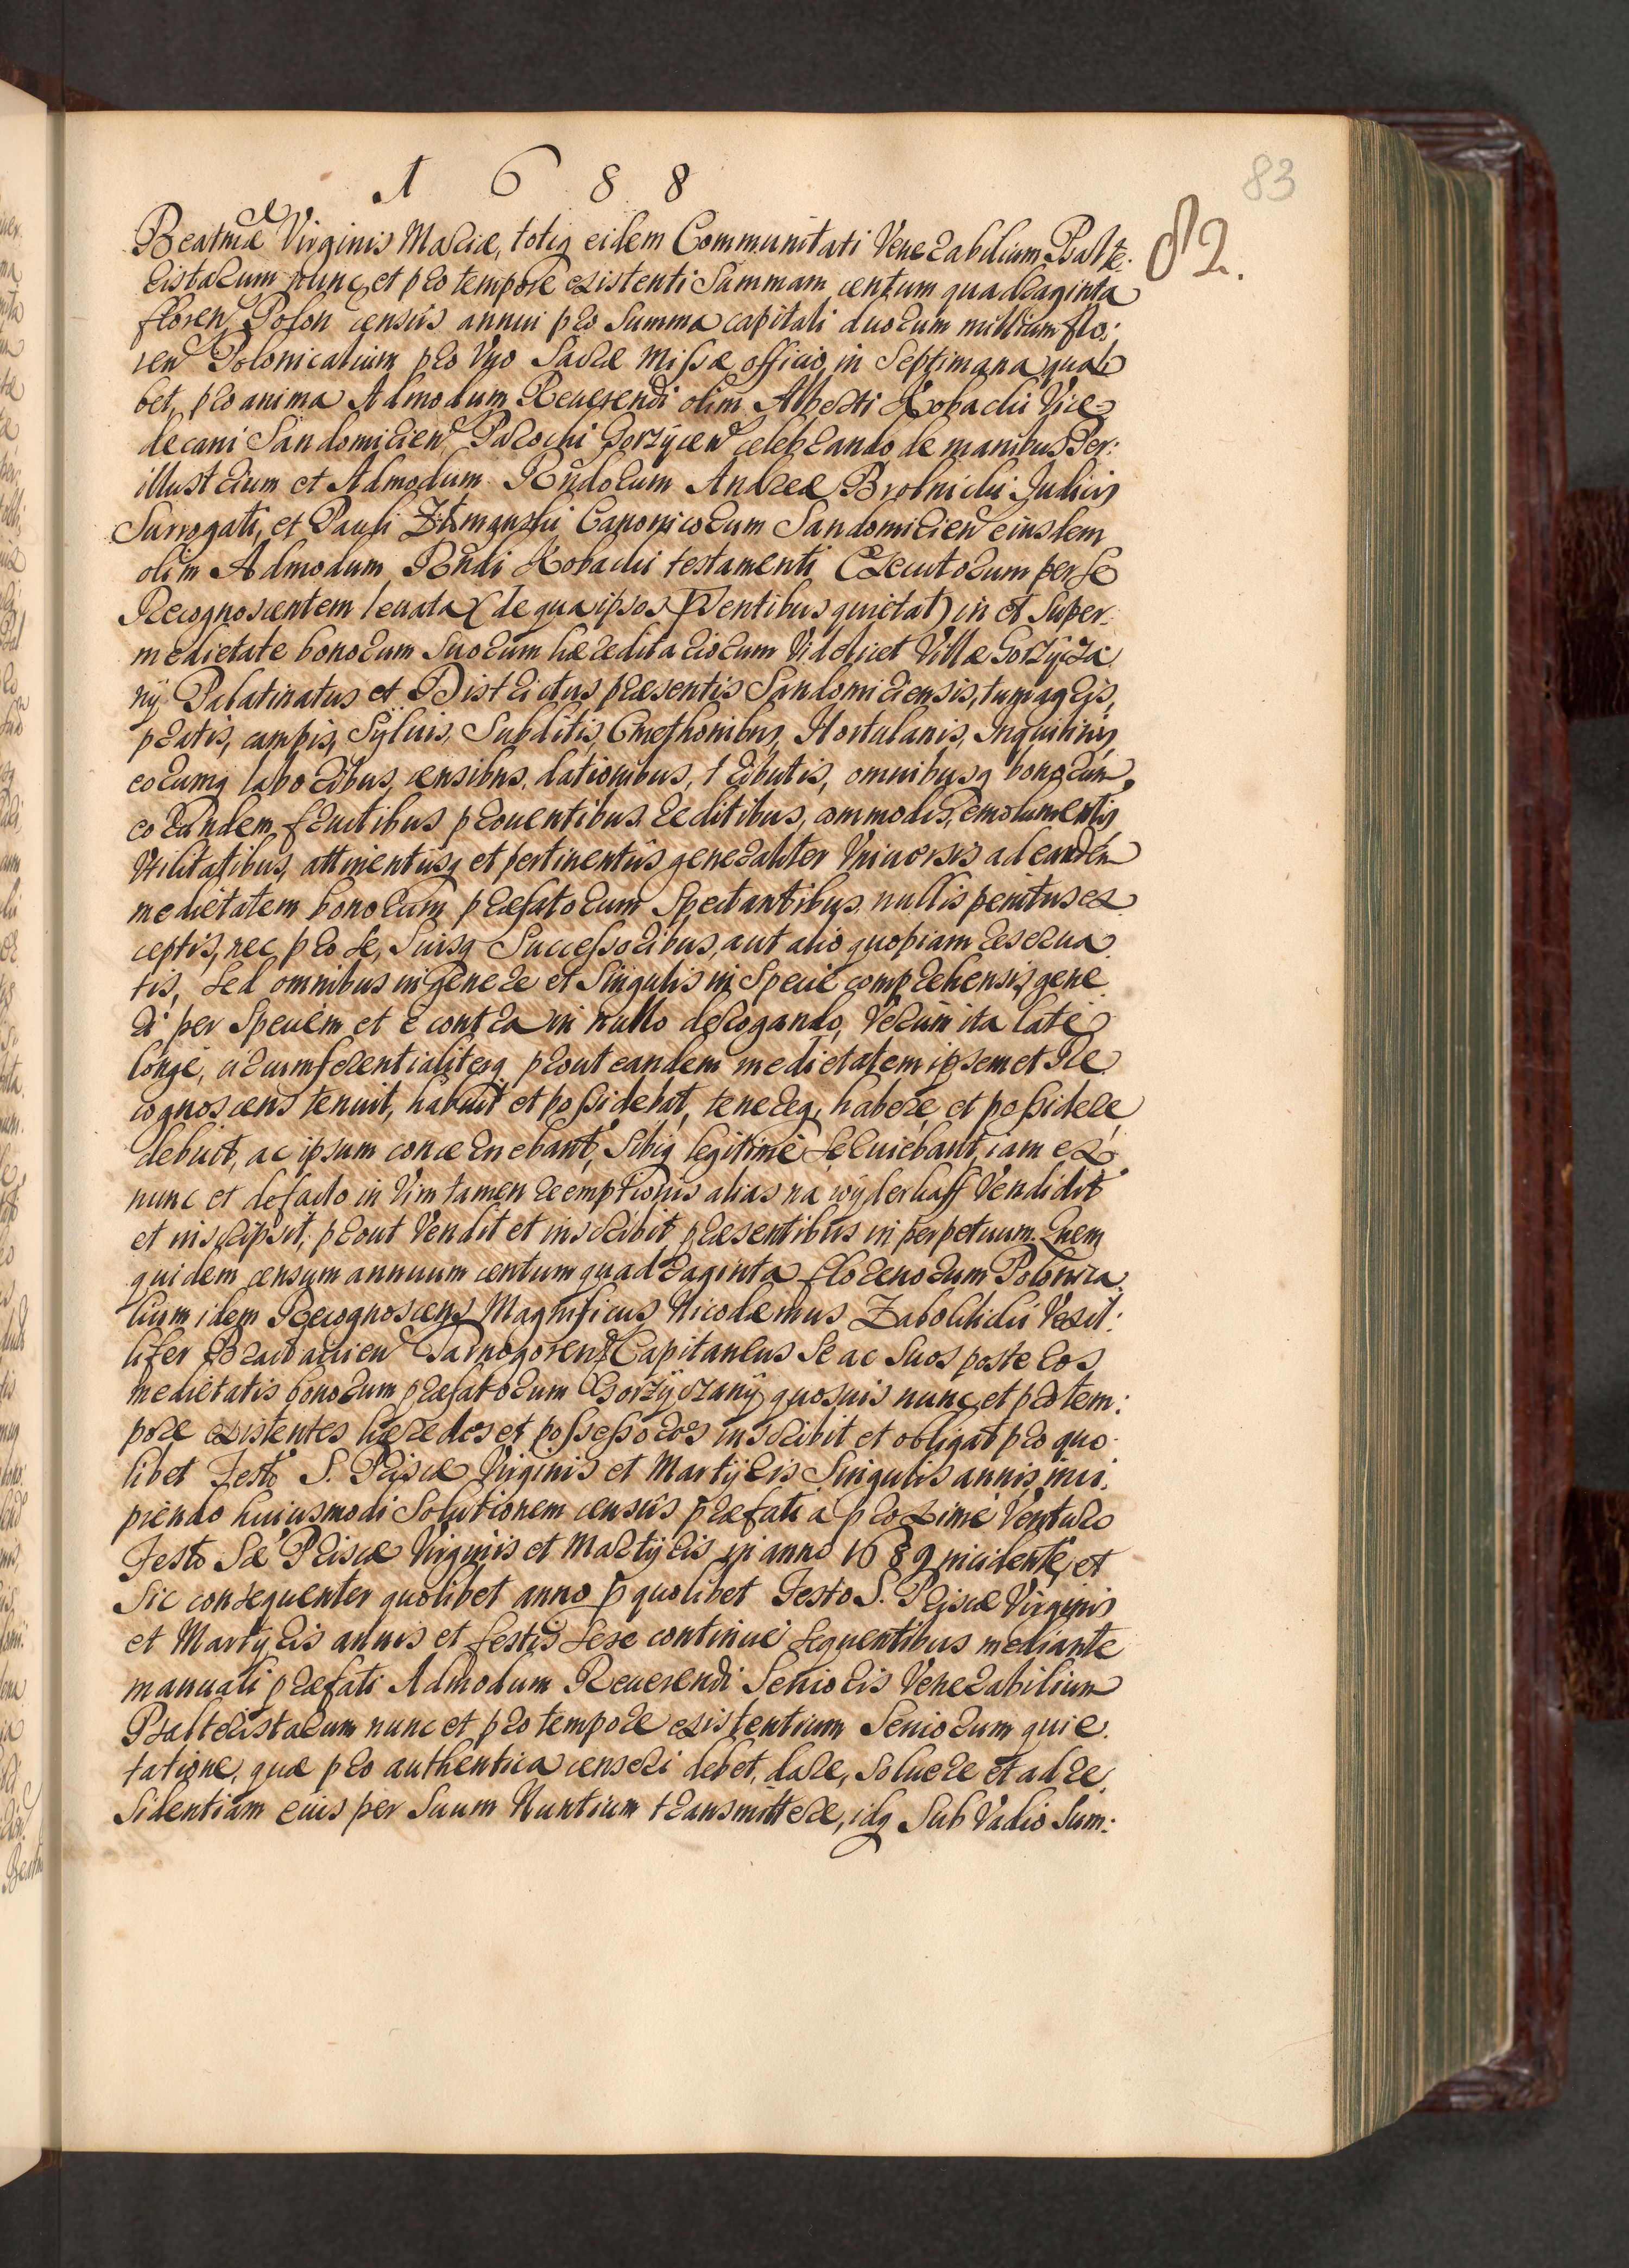 1688
83
82.
Beatmæ Virginis Mariæ, totiq eidem Communitati Venerabilium Psalte:
ristarum nunc et pro tempore existenti Summam centum quadraginta
floren Polon census annui pro Summa capitali duorum millium flo:
ren Polonicalium pro Vno Sacræ Missæ officio in Septimana qualì
bet, pro anima Admodum Reuerendi olim Alberti Kobacki Vice
decani Sandomirien Parochi Gorzÿcen celebrando de manibus Per:
illustrium et Admodum Rndorum Andreæ Brolnicki Judicis
Surrogati, et Pauli Canonicorum Sandomirien eiusdem
olim Admodum Rndi Kobacki testamenti Executorum per se
Recognoscentem leuata (de qua ipsos pñtentibus quietat) in et Super
medietate bonorum Suorum hæreditariorum Videlicet Villæ Gorzÿcza
nÿ Palatinatus et Districtus præsentis Sandomiriensis, tum agris,
pratis, campis, Sÿluis, Subditis, Cmethonibus, Hortulanis, Inquilinis,
eorumq laboribus, censibus, dationibus, tributis, omnibusq bonorum
eorundem fructibus prouentibus reditibus, commodis, emolumentis,
Vtilitatibus, attinentiisq et pertinentiis generaliter Vniuersis ad eandem
medietatem bonorum præfatorum Spectantibus nullis penitus ex
ceptis, nec pro se, Suisq Successoribus, aut alio quopiam reserua
tis, Sed omnibus in genere et Singulis in Specie comprehensis, gene
ri per Speciem et è contra in nullo derogando, Verum ita latè
longè, circumferentialiterq prout eandem medietatem ipsemet Re
cognoscens tenuit, habuit et possidebat, tenereq, habere, et possidere
debuit, ac ipsum concernebant, Sibiq legitimè Seruiebant, iam ex
nunc et defacto in Vim tamen reemptionis alias na wÿderkaff Vendidit
et inscripsit, prout Vendit et inscribit præsentibus in perpetuum. Quem
quidem censum annuum centum quadraginta florenorum Polonica
lium idem Recognoscens Magnificus Nicodemus Zaboklicki Vexil:
lifer Tarnogoren Capitaneus Se ac Suos posteros
medietatis bonorum præfatorum Gorzÿczanÿ quosuis nunc et pro tem:
pore existentes hæredes et possessores inscribit et obligat pro quo
libet Festo S. Priscæ Virginis et Martÿris Singulis annis, inci
piendo huiusmodi Solutionem census præfati à proximè Venturo
Festo Sæ Priscæ Virginis et Martÿris in anno 1689 incidente, et
Sic consequenter quolibet anno p quolibet Festo S. Priscæ Virginis
et Martÿris annis et festis Sese continuè Sequentibus mediante
manuali præfati Admodum Reuerendi Senioris Venerabilium
Psalteristarum nunc et pro tempore existentium Seniorum quie
tatione, quæ pro authentica censeri debet, dare, Soluere et ad re
Sidentiam eius per Suum Nuntium transmittere, idq Sub Vadio Sum: